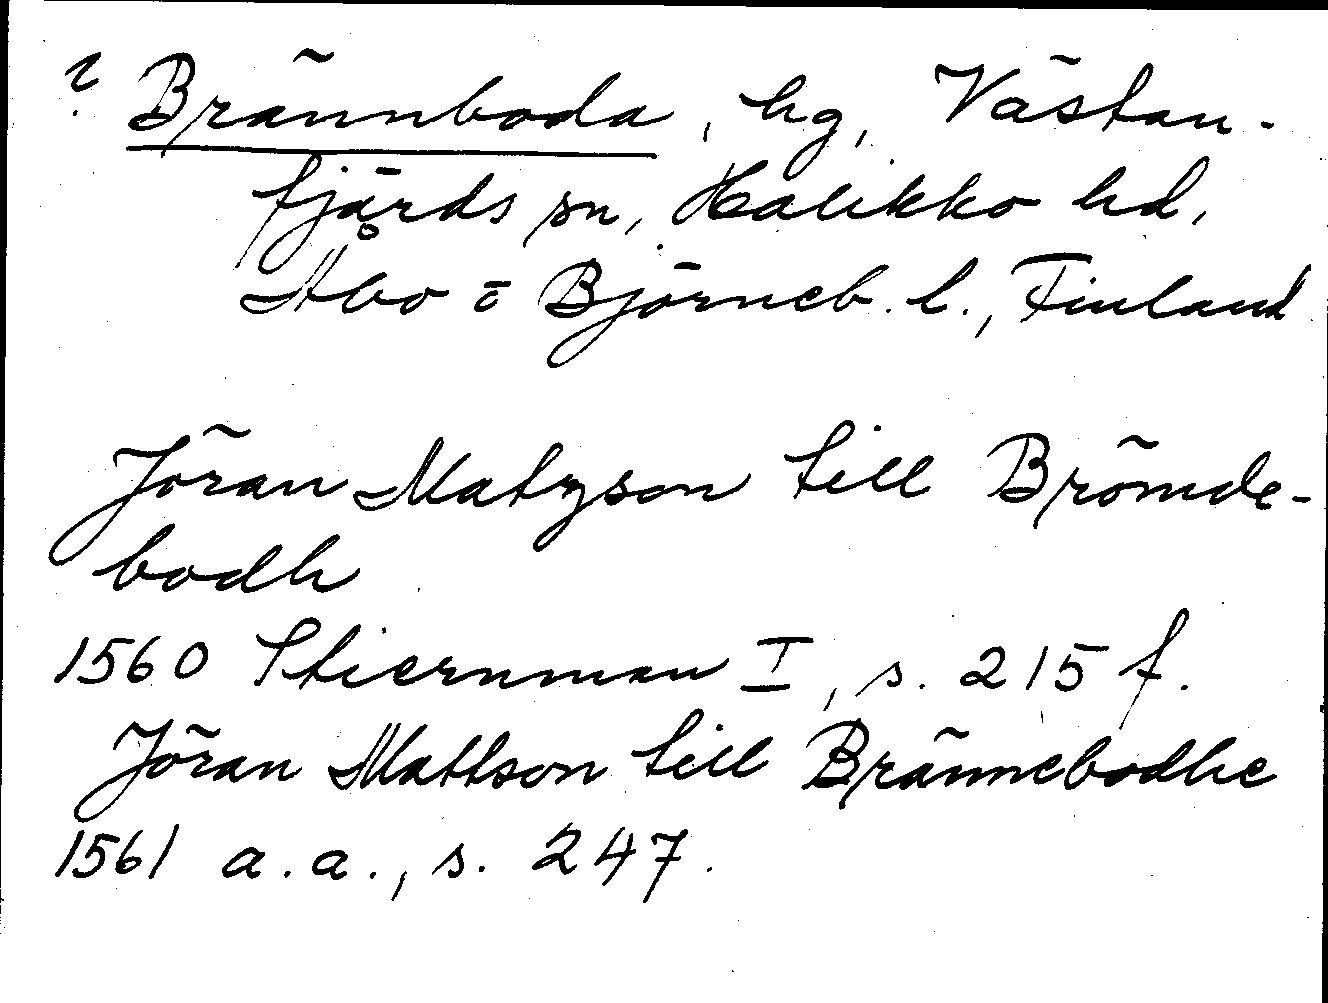 ? Brännboda, hg, Västan-
fjärds sn, Halikko hd,
Åbo o Björneb. l., Finland
Jöran Matzson till Brömde-
bodh
1560 Stiernman I, s. 215 f.
Jöran Mattson till Brännebodhe
1561 a.a., s. 247.